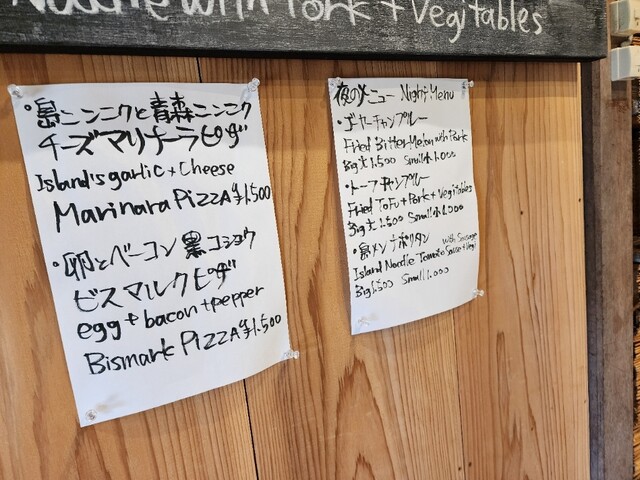 Noodle with Pork + Vegitables
・島ニンニクと青森ニンニク
チーズマリナーラピザ
Island's garlic + Cheese
Marinara Pizza ¥1.500
・卵とベーコン 黒コショウ
ビスマルクピザ
egg + bacon + pepper
Bismark Pizza ¥1.500
夜のメニュー Night Menu
・ゴーヤーチャンプルー
Fried Bitter Melon with Pork
Big大1.500 Small小1.000
・トーフチャンプルー
Fried ToFu + Pork + Vegitables
Big大1.500 Small小1.000
・島メンナポリタン with Sausage
Island Noodle Tomato Sause + Vegi
Big1.500 Small1.000